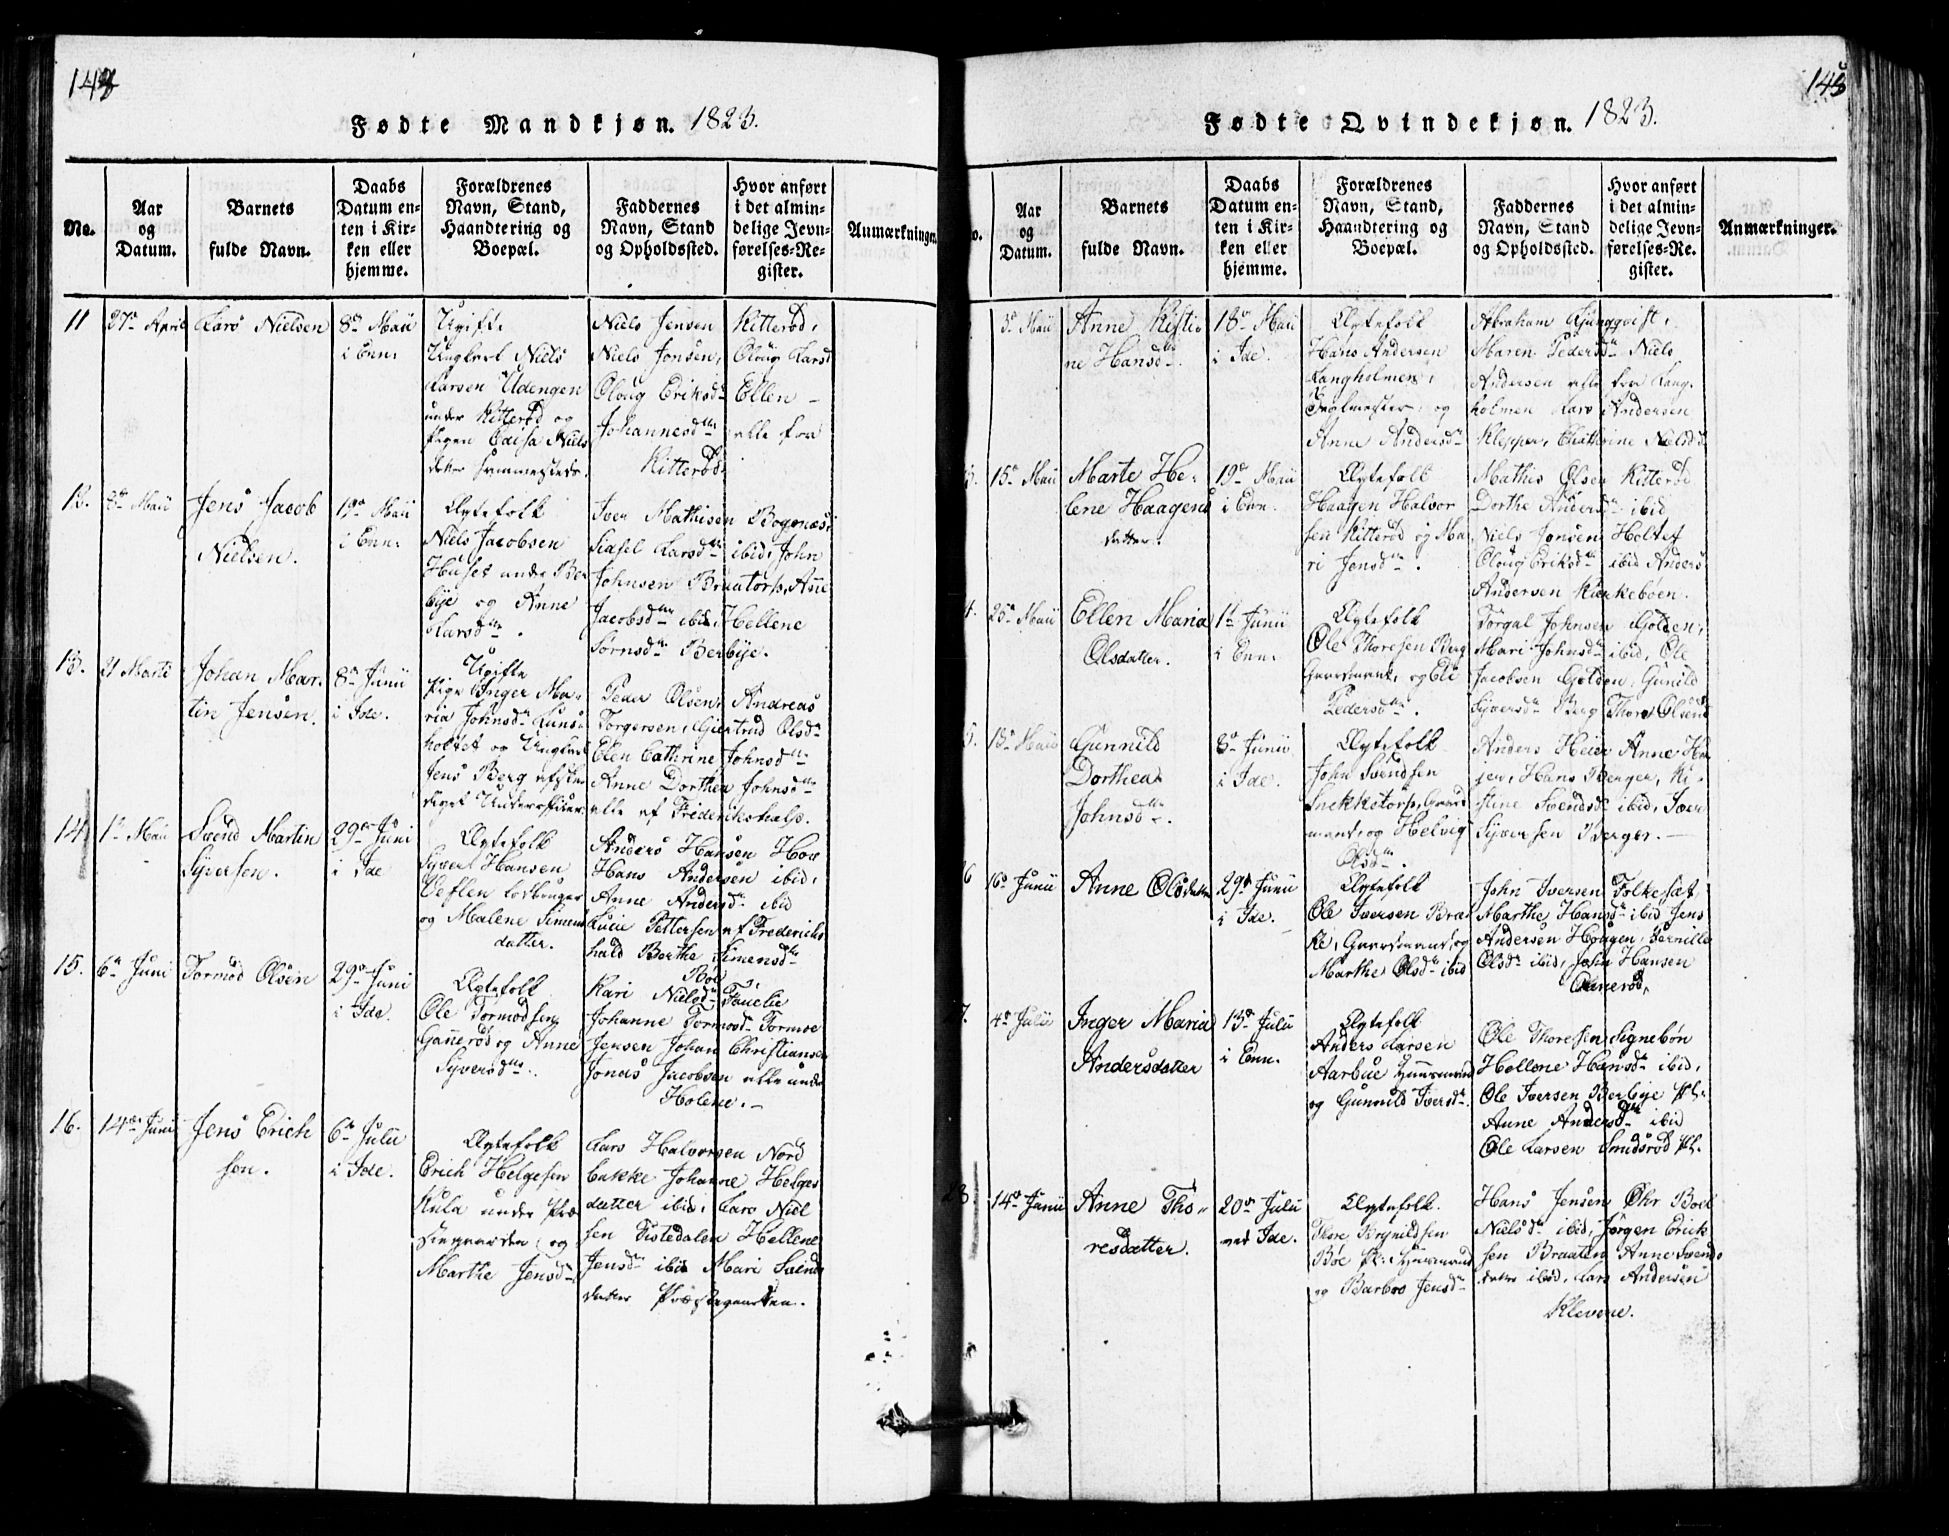 144
Fødte Mandkjøn. 1823.
No.
Aar
og
Datum.
Barnets
fulde Navn.
Daabs
Datum en-
ten i Kir-
ken eller
hjemme.
Forældrenes
Navn, Stand,
Haandtering og
Boepæl.
Faddernes
Navn, Stand
og Opholdssted.
Hvor anført
i det almin-
delige Jevn-
førelses-Re-
gister.
Anmærkninger.
11
27de April
Lars Nielsen
8de Maii
i Enn.
Ugifte
Ungkarl Niels
Larsen Udengen
under Kitterød og
Pigen Edisa Niels
datter sammesteds.
Niels Jensen Kitterød,
Niels Jonsen, Oloug Larsd
Oloug Eriksdr Ellen –
Johannesdtr alle fra
Kitterød.
12.
8de Maii
Jens Jacob
Nielsen.
19de Maii
i Enn.
Ægtefolk
Niels Jacobsen
Huset under Ber
bye og Anne
Larsdtr.
Iver Mathisen Bognæs,
Sidsel Larsdtr ibid, John
Johnsen Braatorp, Anne
Jacobsdtr ibid. Hellene
Sørnsdtr Berbye.
13.
21 Martii
Johan Mar-
tin Jensen.
8de Junii
i Ide.
Ugifte
Pige Inger Ma-
ria Johnsdr Luns-
holtet og Ungkarl
Jens Berg afske-
diget Underofficer
Peder Olsen, Andreas
Torgersen, Giertrud Olsdtr
Elen Cathrine Johnsdtr
Anne Dorthea Johnsdtr
alle af Frederikshald.
14.
1te Maii
Svend Martin
Syversen.
29de Juni
i Ide
Ægtefolk
Syver Hansen
Veflen
og Malene Simens
datter.
Anders Hansen Hov
Hans Andersen ibid,
Anne Andersdr ibid
Lucie Pettersen af Frederichs
hald Berthe Simensdtr
Bøe
15.
6te Juni
Tormod Olsen
29de Juni
i Ide.
Ægtefolk
Ole Tormodsen
Gannerød og Anne
Syversdtr.
Kari Nielsdr
Johanne Tormodr Tormoe
Jensen Johan Christiansen
Jonas Jacobsen alle under
Holene. –
16.
14de Juni
Jens Erich
sen.
6te Julii
i Ide.
Ægtefolk
Erich Helgesen
Kula under Præ
stegaarden og
Marthe Jensdr
Lars Halvorsen Nord
bakke Johanne Helges
datter ibid, Lars Niel
sen Tistedalen Hellene
Jensdr ibid Mari Svends
datter Præstegaarden.
145
Fødte Qvindekjøn. 1823.
No.
Aar
og
Datum.
Barnets
fulde Navn.
Daabs
Datum en-
ten i Kir-
ken eller
hjemme.
Forældrenes
Navn, Stand,
Haandtering og
Boepæl.
Faddernes
Navn, Stand
og Opholdssted.
Hvor anført
i det almin-
delige Jevn-
førelses-Re-
gister.
Anmærkninger.
3de Maii
Anne Kisti-
ne Hansdtr.
18de Maii
i Ide.
Ægtefolk
Hans Andersen
Langholmen,
Teglmester, og
Anne Andersdr
Abraham Ljungqvist,
Maren Pedersdr Niels
Andersen alle fra Lang-
holmen Lars Andersen
Klepper, Chathrine Nielsdr
3.
15de Maii
Marte He-
lene Haagens
datter.
19de Maii
i Enn.
Ægtefolk
Haagen Halvor
sen Kitterød og Ma-
ri Jensdtr.
Mathis Olsen Kitterød
Dorthe Andersdr ibid
Niels Jonsen Holtet
Oloug Eriksdr ibid Anders
Andersen Kirkebøen.
4.
25de Maii
Ellen Maria
Olsdatter.
1te Junii
i Enn.
Ægtefolk
Ole Thoresen Berg
Gaardmand, og Eli
Pedersdtr.
Torgal Johnsen Gjølden,
Mari Johnsdr ibid, Ole
Jacobsen Gjølden, Gunild
Syversdr Berg Thore Olsen
5.
13de Maii
Gunnild
Dorthea
Johnsdtr.
8de Junii
i Ide.
Ægtefolk
John Svendsen
Snekkstorp, Gaard
mand, og Helvig
Olsdtr.
Anders Heier Anne He
jer, Hans Berger, Ki-
stine Svendsdr ibid, Iver
Syversen Berger. –
6
16de Junii
Anne Olsdatter
29de Junii
i Ide.
Ægtefolk
Ole Iversen Bræk
ke, Gaardmand, og
Marthe Olsdr ibid
John Iversen Folkesæt,
Marthe Hansdr ibid Jens
Andersen Hougen, Pernille
Olsdr ibid, John Hansen
7.
4de Julii
Inger Maria
Andersdatter
13de Julii
i Enn.
Ægtefolk
Anders Larsen
Aarbue Huusmand
og Gunnild Iversdr.
Ole Thoresen Signebøn
Hellene Hansdr ibid,
Ole Iversen Berbye Pl:
Anne Andersdr ibid
Ole Larsen Smidsrød Pl.
28
14de Junii
Anne Tho-
resdatter.
20de Julii
ved Ide.
Ægtefolk.
Thore Brynildsen
Bøe Pl: Huusmand
og Barbro Jensdr
Hans Jensen Øhr Boel
Nielsdr ibid, Jørgen Erick
sen Braaten, Anne Svends
datter ibid, Lars Andersen
Klevene.